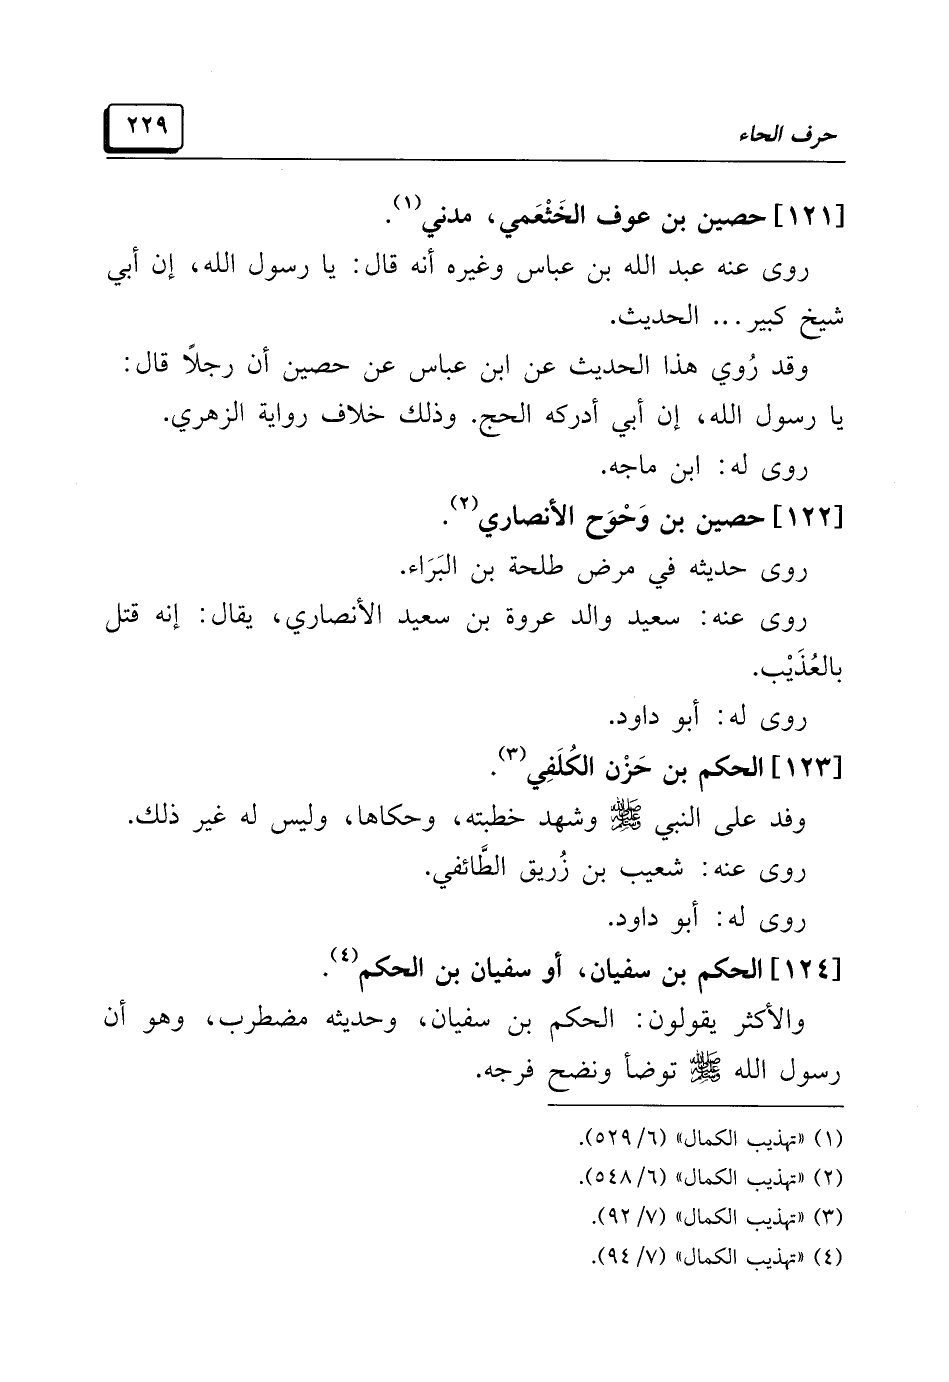 حرف الحاء
٢٢٩
[١٢١] حصين بن عوف الخَثْعَمي، مدني(١).
روى عنه عبد الله بن عباس وغيره أنه قال: يا رسول الله، إن أبي
شيخ كبير ... الحديث.
وقد رُوي هذا الحديث عن ابن عباس عن حصين أن رجلًا قال:
يا رسول الله، إن أبي أدركه الحج. وذلك خلاف رواية الزهري.
روى له: ابن ماجه.
[١٢٢] حصين بن وَحْوَح الأنصاري(٢).
روى حديثه في مرض طلحة بن البَرَاء.
روى عنه: سعيد والد عروة بن سعيد الأنصاري، يقال: إنه قتل
بالعُذَيْب.
روى له: أبو داود.
[١٢٣] الحكم بن حَزْن الكُلَفِي(٣).
وفد على النبي ﷺ وشهد خطبته، وحكاها، وليس له غير ذلك.
روى عنه: شعيب بن زُريق الطَّائفي.
روى له: أبو داود.
[١٢٤] الحكم بن سفيان، أو سفيان بن الحكم(٤).
والأكثر يقولون: الحكم بن سفيان، وحديثه مضطرب، وهو أن
رسول الله ﷺ توضأ ونضح فرجه.
(١) «تهذيب الكمال» (٦/ ٥٢٩).
(٢) «تهذيب الكمال» (٦/ ٥٤٨).
(٣) «تهذيب الكمال» (٧/ ٩٢).
(٤) «تهذيب الكمال» (٧/ ٩٤).